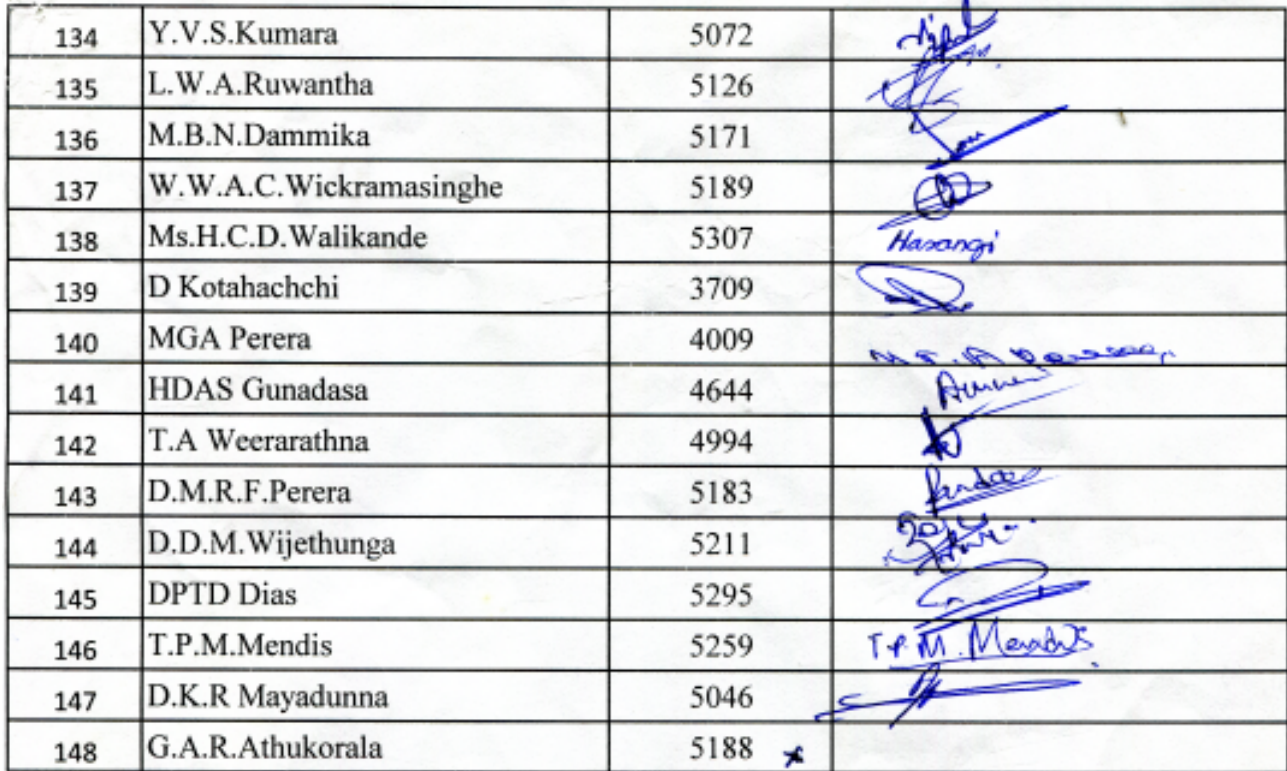 134 Y.V.S.Kumara 5072
135 L.W.A.Ruwantha 5126
136 M.B.N.Dammika 5171
137 W.W.A.C.Wickramasinghe 5189
138 Ms.H.C.D.Walikande 5307 Hasangi
139 D Kotahachchi 3709
140 MGA Perera 4009
141 HDAS Gunadasa 4644
142 T.A Weerarathna 4994
143 D.M.R.F.Perera 5183
144 D.D.M.Wijethunga 5211
145 DPTD Dias 5295
146 T.P.M.Mendis 5259 T.P.M. Mendis
147 D.K.R Mayadunna 5046
148 G.A.R.Athukorala 5188 x